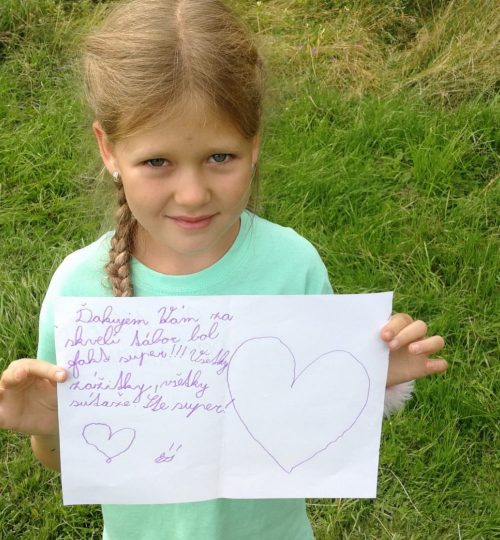 Ďakujem Vám za
skvelí tábor bol
fakt super!!! Všetky
zážitky, všetky
súťaže. Ste super!